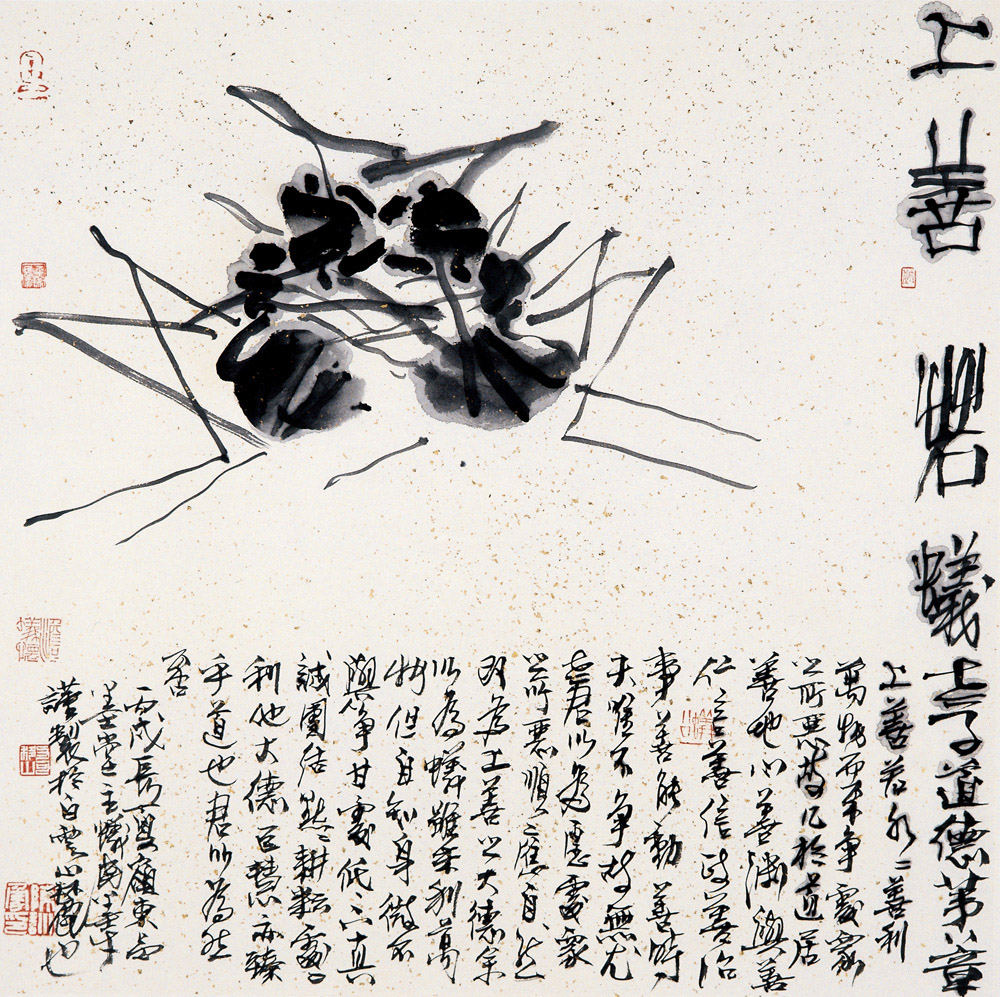 上善若蟻 老子道德第八章
上善若水〻善利
萬物而不爭處衆
之所惡故几於道居
善地心善淵與善
仁言善信政善治
事善能動善時
夫唯不爭故無尤
老君以為隱處衆
之所惡順應自然
即為上善之大德余
以為蟻雖不利萬
物但自知身微不
與爭甘處低下真
誠團結默〻耕耘處〻
利他大德百慧亦臻
乎道也君以為然
否
丙戌長夏嶺東
墨堂主
謹製於白雲山麓也